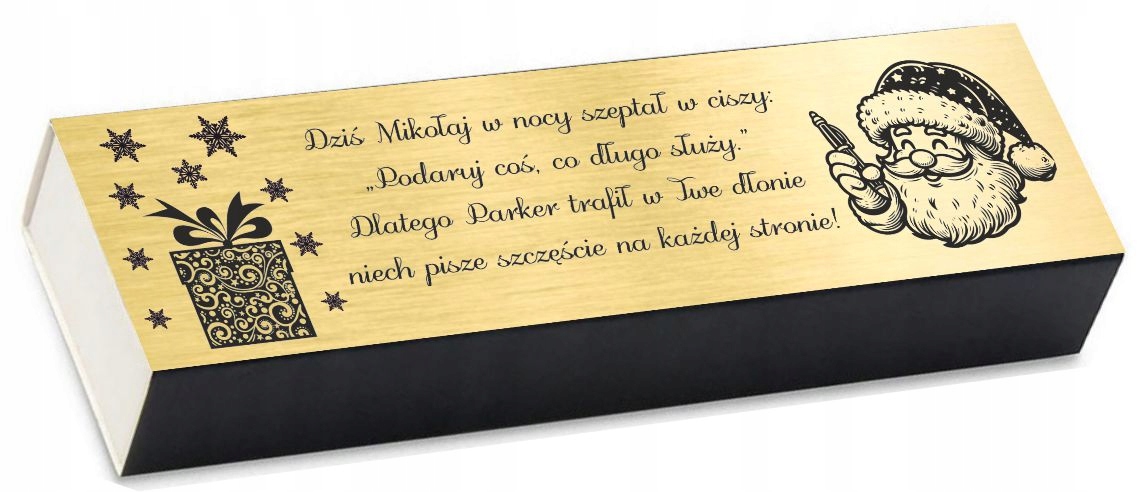 Dziś Mikołaj w nocy szeptał w ciszy:
„Podaruj coś, co długo służy.”
Dlatego Parker trafił w Twe dłonie
niech pisze szczęście na każdej stronie!